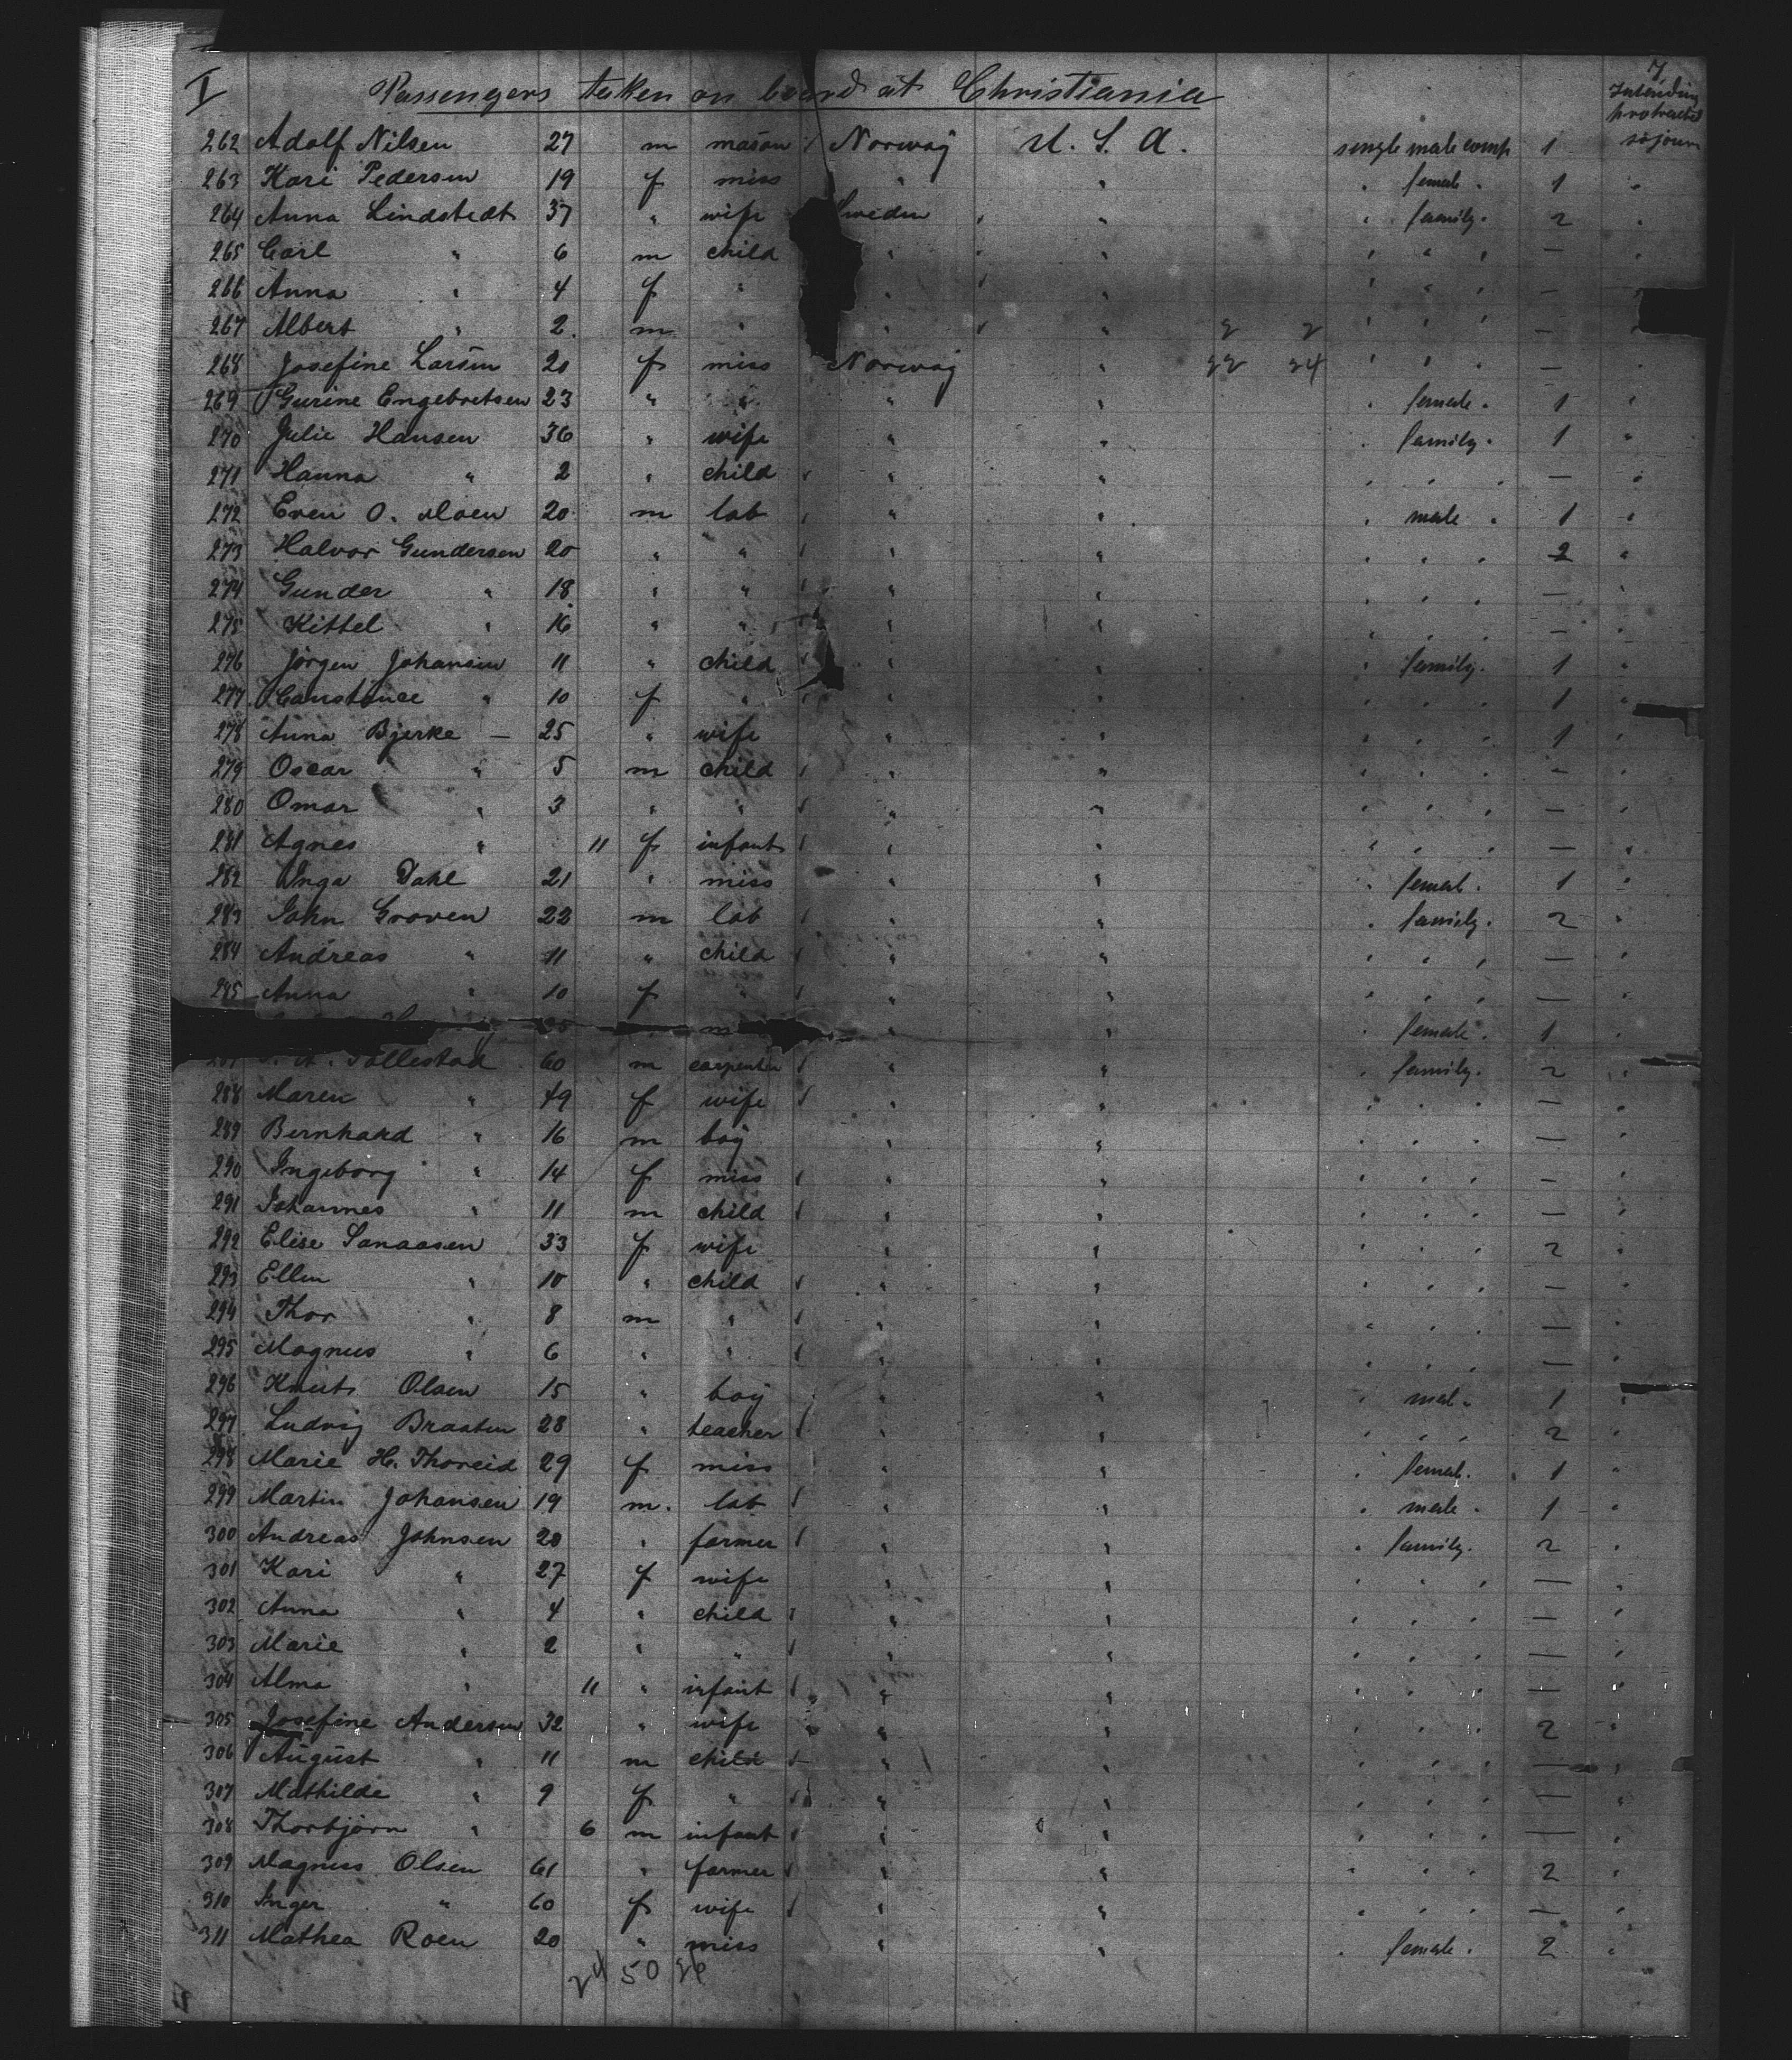 I Passengers taken on board at Christiania 7
Intending protracted sojourn
262 Adolf Nilsen 27 m mason Norway U. S. A. single male comp 1 "
263 Kari Pedersen 19 f miss " " " female " 1 "
264 Anna Lindstedt 37 " wife Sweden " " family " 2 "
265 Carl " 6 m child " " " " " — "
266 Anna " 4 f " " " " " " — "
267 Albert " 2 m " " " " " " — "
268 Josefine Larsen 20 f miss Norway " 22 24 " " " — "
269 Gurine Engebretsen 23 " " " " " female " 1 "
270 Julie Hansen 36 " wife " " " family " 1 "
271 Hanna " 2 " child " " " " " — "
272 Even O. Moen 20 m lab " " " male " 1 "
273 Halvor Gundersen 20 " " " " " " " 2 "
274 Gunder " 18 " " " " " " " — "
275 Kittel " 16 " " " " " " " — "
276 Jørgen Johansen 11 " child " " " family " 1 "
277 Constance " 10 f " " " " " " 1 "
278 Anna Bjerke — 25 " wife " " " " " 1 "
279 Oscar " 5 m child " " " " " — "
280 Omar " 3 " " " " " " " — "
281 Agnes " 11 f infant " " " " " — "
282 Inga Dahl 21 " miss " " " femal " 1 "
283 John Groven 22 m lab " " " family " 2 "
284 Andreas " 11 " child " " " " " — "
285 Anna " 10 f " " " " " " — "
" " " female " 1 "
Tollestad 60 m carpenter " " " family " 2 "
288 Maren " 49 f wife " " " " " — "
289 Bernhard " 16 m boy " " " " " — "
290 Ingeborg " 14 f miss " " " " " — "
291 Johannes " 11 m child " " " " " — "
292 Elise Sanaasen 33 f wife " " " " " 2 "
293 Ellen " 10 " child " " " " " — "
294 Thor " 8 m " " " " " " — "
295 Magnus " 6 " " " " " " " — "
296 Knut Olsen 15 " boy " " " mal " 1 "
297 Ludvig Braaten 28 " teacher " " " " " 2 "
298 Marie H. Thoreid 29 f miss " " " femal " 1 "
299 Martin Johansen 19 m. lab " " " male " 1 "
300 Andreas Johnsen 28 " farmer " " " family " 2 "
301 Kari " 27 f wife " " " " " — "
302 Anna " 4 " child " " " " " — "
303 Marie " 2 " " " " " " " — "
304 Alma " 11 " infant " " " " " — "
305 Josefine Andersen 32 " wife " " " " " 2 "
306 August " 11 m child " " " " " — "
307 Mathilde " 9 f " " " " " " — "
308 Thorbjørn " 6 m infant " " " " " — "
309 Magnus Olsen 61 " farmer " " " " " 2 "
310 Inger " 60 f wife " " " " " — "
311 Mathea Roen 20 " miss " " " female " 2 "
24 50 26